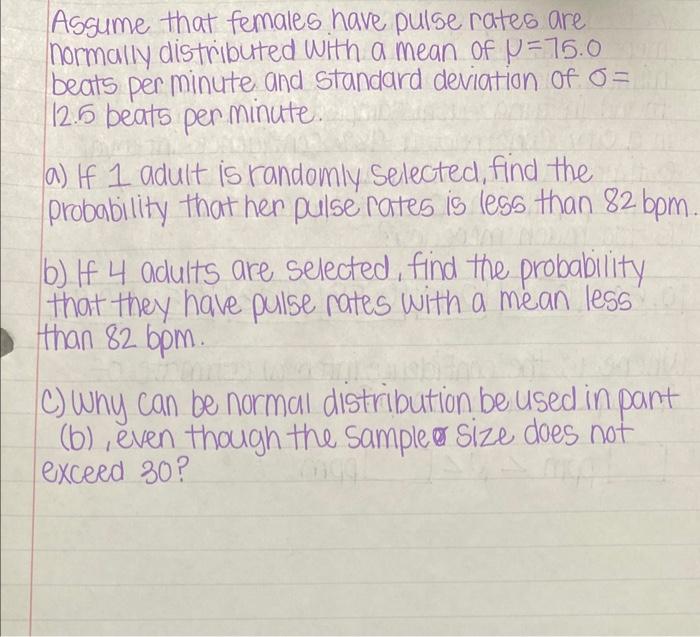 Assume that females have pulse rates are
normally distributed with a mean of μ=75.0
beats per minute and standard deviation of σ=
12.5 beats per minute.
a) If 1 adult is randomly selected, find the
probability that her pulse rates is less than 82 bpm.
b) If 4 adults are selected, find the probability
that they have pulse rates with a mean less
than 82 bpm.
C) Why can be normal distribution be used in part
(b), even though the sample size does not
exceed 30?